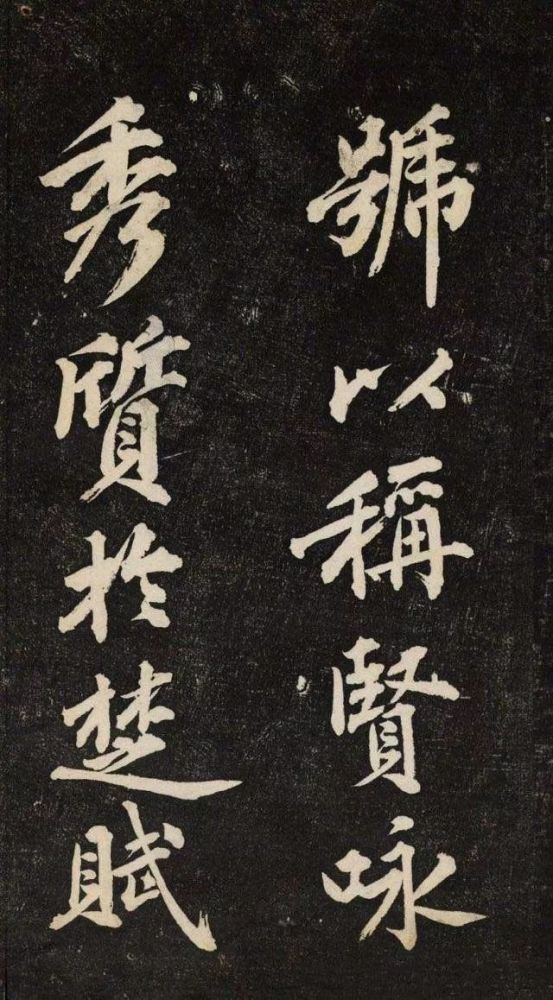 號以稱賢咏
秀質於楚賦